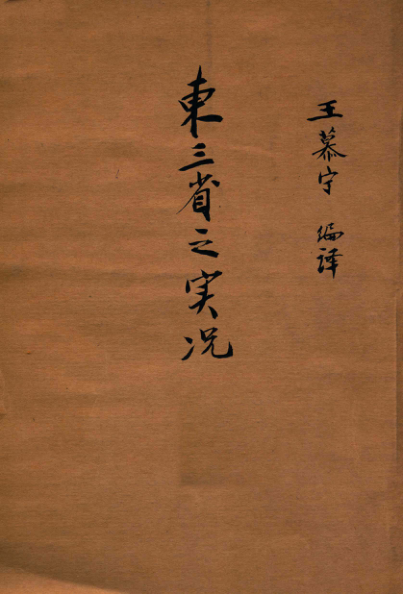 王慕宁 编译
東三省之实况